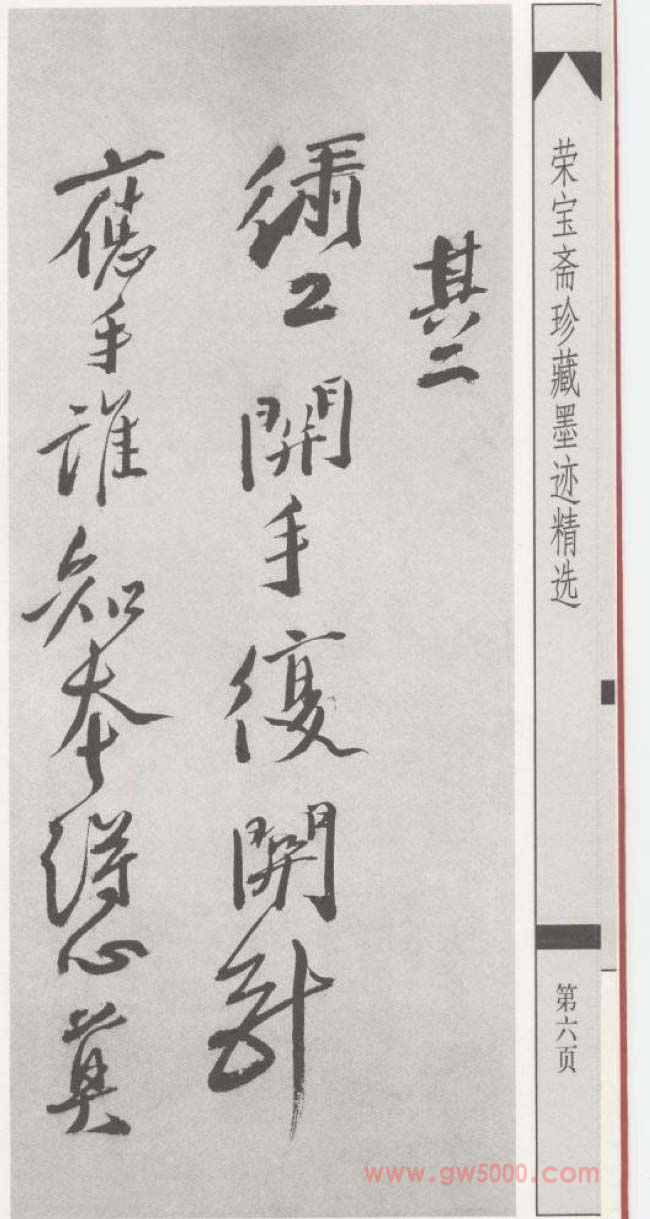 荣宝斋珍藏墨迹精选
第六页
其二
繡工開手復開針
應手誰知本得心莫
www.gw5000.com